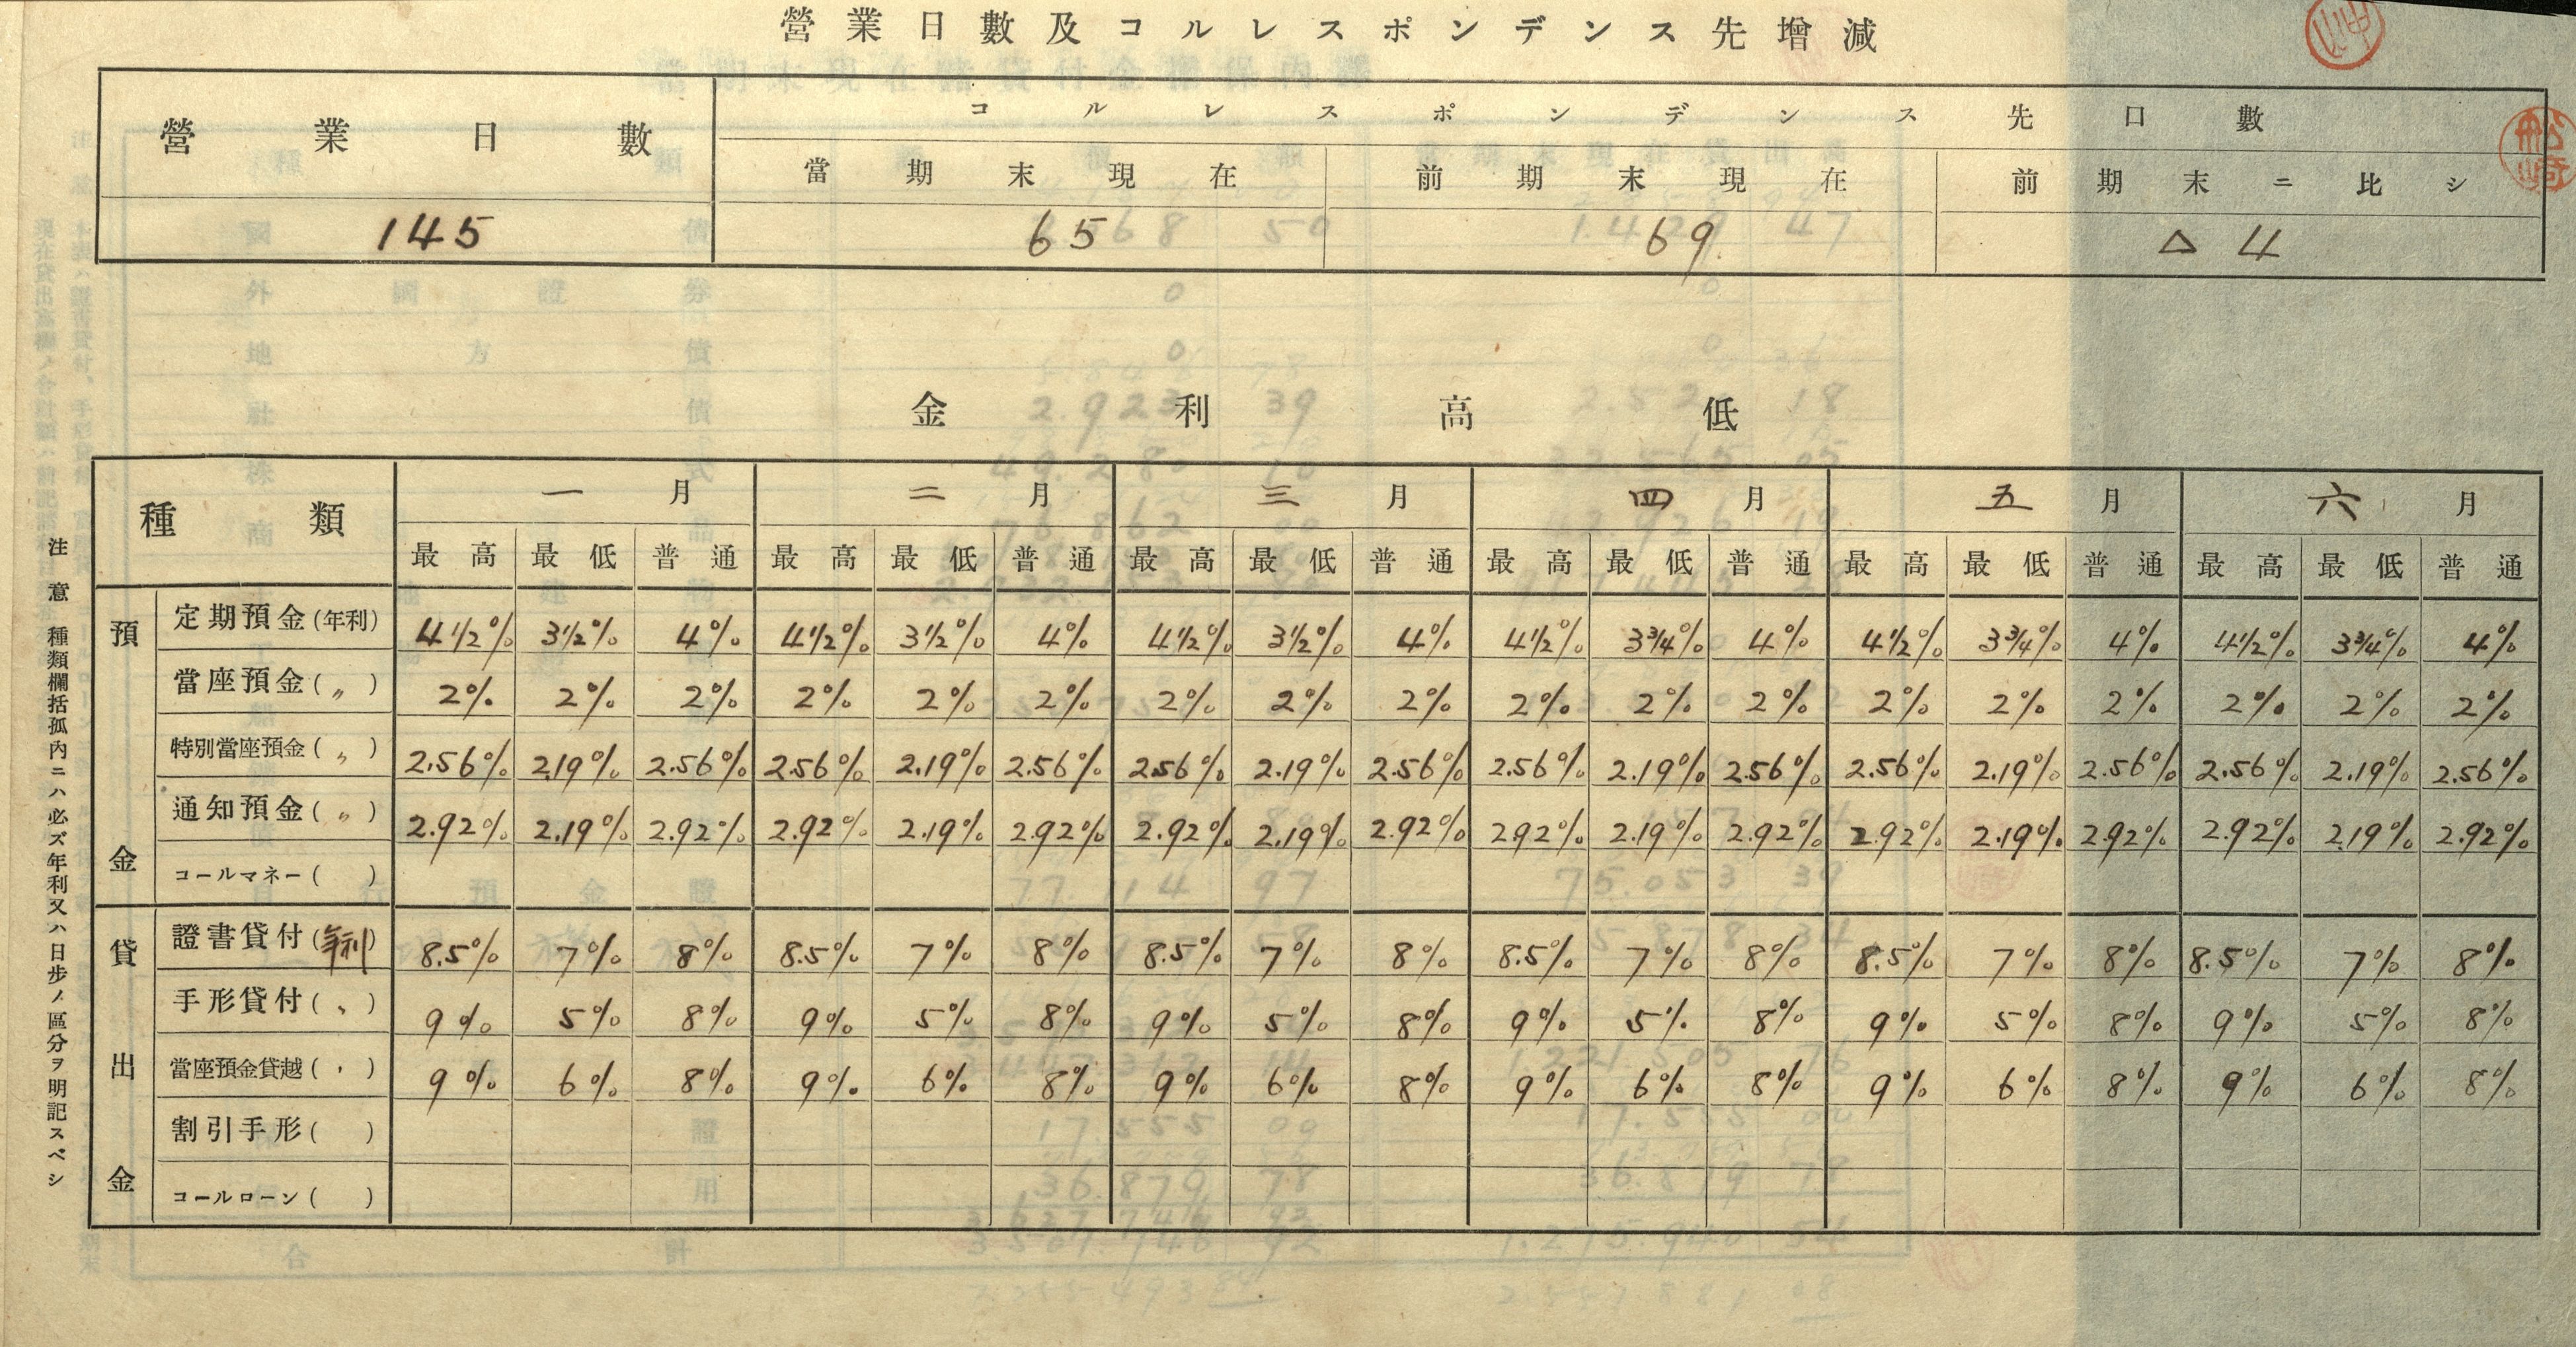 營業日數及コルレスポンデンス先增減
營業日數 コルレスポンデンス先口數
當期末現在 前期末現在 前期末ニ比シ
145 65 69 △ 4
金利高低
種類 一月 二月 三月 四月 五月 六月
最高 最低 普通 最高 最低 普通 最高 最低 普通 最高 最低 普通 最高 最低 普通 最高 最低 普通
預金
定期預金(年利) 4½% 3½% 4% 4½% 3½% 4% 4½% 3½% 4% 4½% 3¾% 4% 4½% 3¾% 4% 4½% 3¾% 4%
當座預金(〃) 2% 2% 2% 2% 2% 2% 2% 2% 2% 2% 2% 2% 2% 2% 2% 2% 2% 2%
特別當座預金(〃) 2.56% 2.19% 2.56% 2.56% 2.19% 2.56% 2.56% 2.19% 2.56% 2.56% 2.19% 2.56% 2.56% 2.19% 2.56% 2.56% 2.19% 2.56%
通知預金(〃) 2.92% 2.19% 2.92% 2.92% 2.19% 2.92% 2.92% 2.19% 2.92% 2.92% 2.19% 2.92% 2.92% 2.19% 2.92% 2.92% 2.19% 2.92%
コールマネー( )
貸出金
證書貸付(年利) 8.5% 7% 8% 8.5% 7% 8% 8.5% 7% 8% 8.5% 7% 8% 8.5% 7% 8% 8.5% 7% 8%
手形貸付(〃) 9% 5% 8% 9% 5% 8% 9% 5% 8% 9% 5% 8% 9% 5% 8% 9% 5% 8%
當座預金貸越(〃) 9% 6% 8% 9% 6% 8% 9% 6% 8% 9% 6% 8% 9% 6% 8% 9% 6% 8%
割引手形( )
コールローン( )
注意 種類欄括孤內ニハ必ズ年利又ハ日步ノ區分ヲ明記スベシ